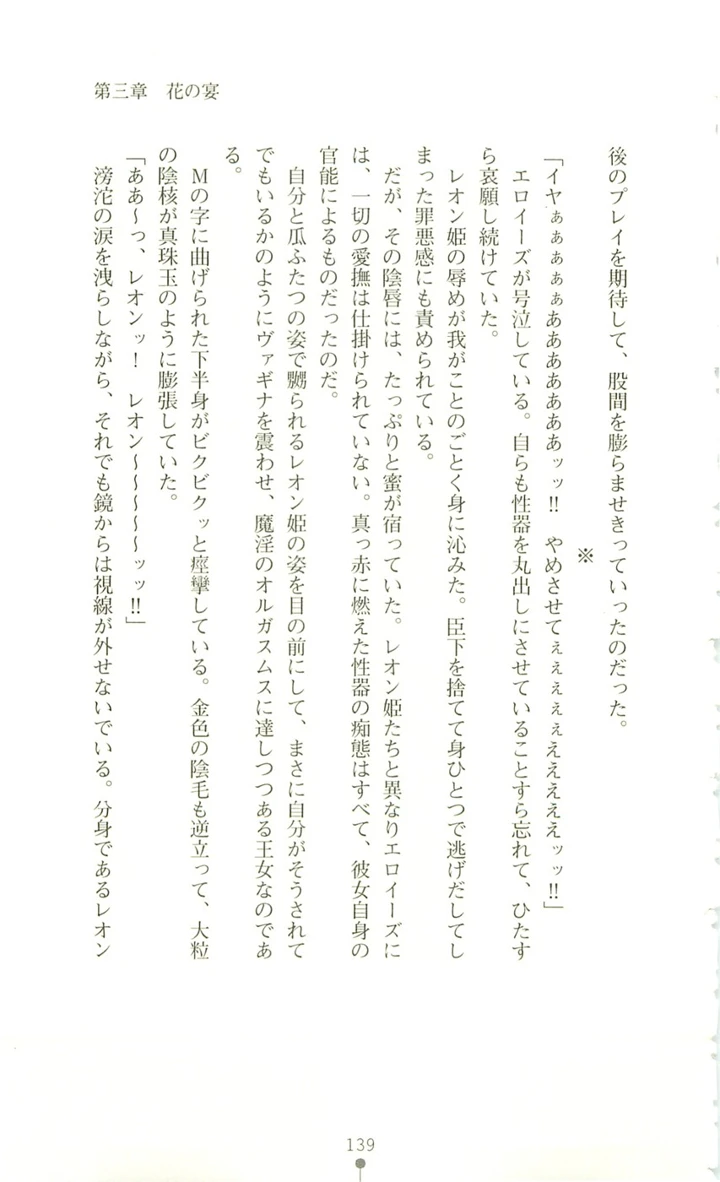 第三章　花の宴
後のプレイを期待して、股間を膨らませきっていったのだった。
※
「イヤぁぁぁぁぁあああああああッッ‼　やめさせてぇぇぇぇぇえええええッッ‼」
エロイーズが号泣している。自らも性器を丸出しにさせていることすら忘れて、ひたす
ら哀願し続けていた。
レオン姫の辱めが我がことのごとく身に沁みた。臣下を捨てて身ひとつで逃げだしてし
まった罪悪感にも責められている。
だが、その陰唇には、たっぷりと蜜が宿っていた。レオン姫たちと異なりエロイーズに
は、一切の愛撫は仕掛けられていない。真っ赤に燃えた性器の痴態はすべて、彼女自身の
官能によるものだったのだ。
自分と瓜ふたつの姿で嬲られるレオン姫の姿を目の前にして、まさに自分がそうされて
でもいるかのようにヴァギナを震わせ、魔淫のオルガスムスに達しつつある王女なのであ
る。
Mの字に曲げられた下半身がビクビクッと痙攣している。金色の陰毛も逆立って、大粒
の陰核が真珠玉のように膨張していた。
「ああ～っ、レオンッ！　レオン～～～～～ッッ‼」
滂沱の涙を洩らしながら、それでも鏡からは視線が外せないでいる。分身であるレオン
139